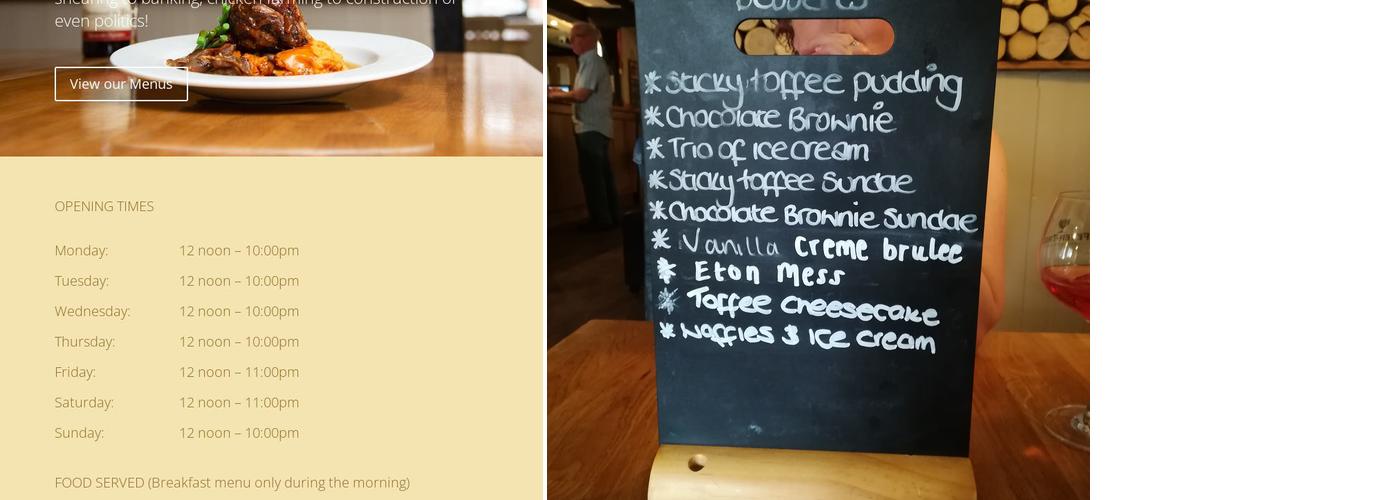 shearing to banking, chicken farming to construction or
even politics!
View our Menus
OPENING TIMES
Monday: 12 noon – 10:00pm
Tuesday: 12 noon – 10:00pm
Wednesday: 12 noon – 10:00pm
Thursday: 12 noon – 10:00pm
Friday: 12 noon – 11:00pm
Saturday: 12 noon – 11:00pm
Sunday: 12 noon – 10:00pm
FOOD SERVED (Breakfast menu only during the morning)
Desserts
* Sticky toffee pudding
* Chocolate Brownie
* Trio of ice cream
* Sticky toffee Sundae
* Chocolate Brownie Sundae
* Vanilla creme brulee
* Eton Mess
* Toffee Cheesecake
* Waffles & Ice cream